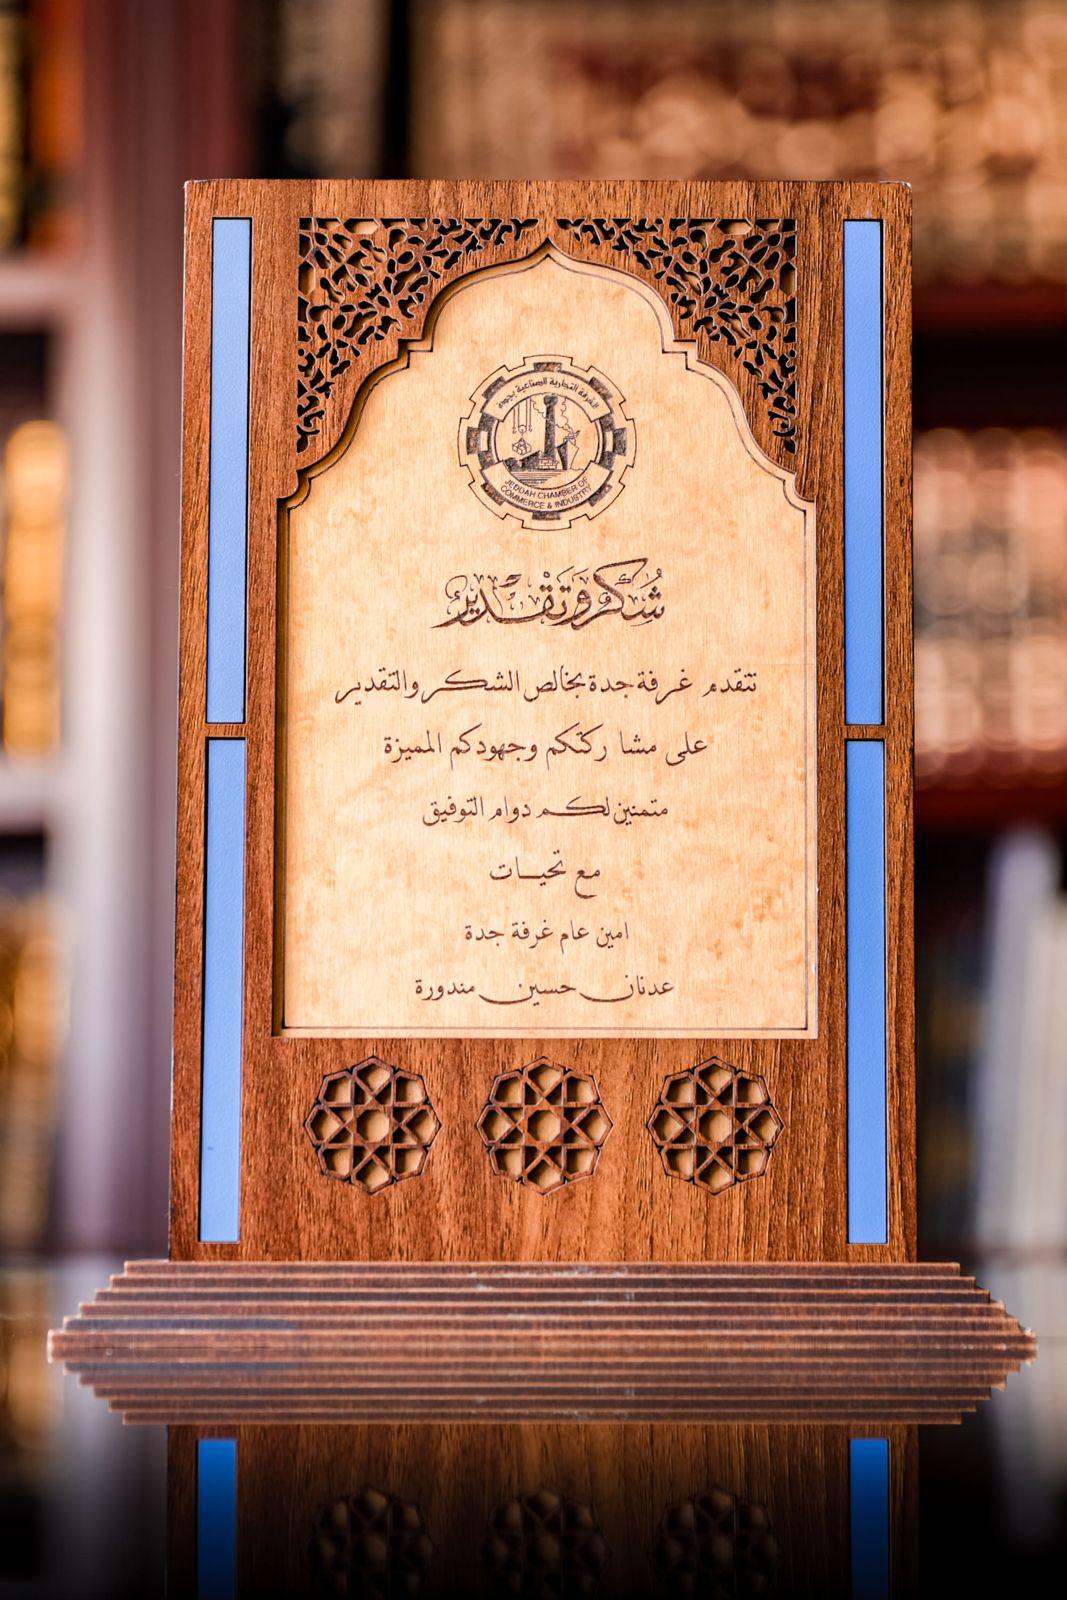 الغرفة التجارية الصناعية بجدة
JEDDAH CHAMBER OF
COMMERCE & INDUSTRY
شُكْرٌ وَتَقْدِيرٌ
تتقدم غرفة جدة بخالص الشكر والتقدير
على مشاركتكم وجهودكم المميزة
متمنين لكم دوام التوفيق
مع تحيات
امين عام غرفة جدة
عدنان حسين مندورة